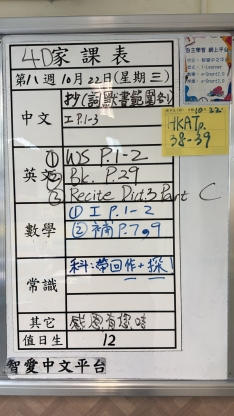 4D家課表
第八週10月22日(星期三)
自主學習 網上平台
中文
抄(詞獻書範圍創)
工P.1-3
10-22
HKATp.
38-39
英文
① WS P.1-2
② Bk. P.29
③ Recite Dict.3 Part C
數學
① 工P.1-2
② 補P.7,9
常識
科:帶回作+探!
其它
感恩有您咭
值日生
12
智愛中文平台